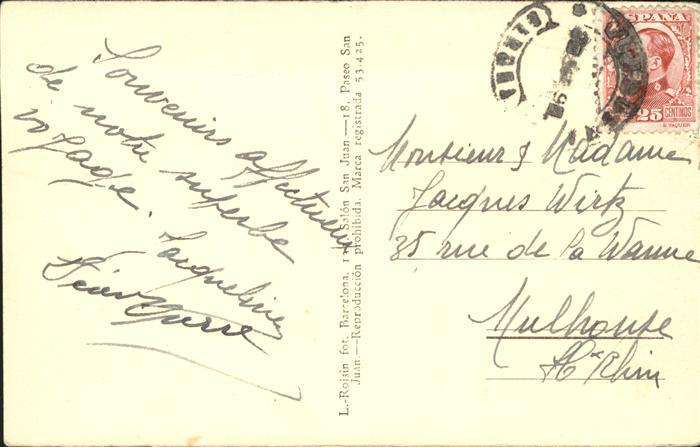 Souvenirs affectueux
de notre superbe
voyage.
Jacqueline
L.-Roisin fot. Barcelona, Salón San Juan—18, Paseo San
Juan.—Reproducción prohibida. Marca registrada 53.425.
ESPAÑA
25 CENTIMOS
GERONA
Monsieur & Madame
Jacques Wirtz
35 rue de la Wanne
Mulhouse
Ht Rhin